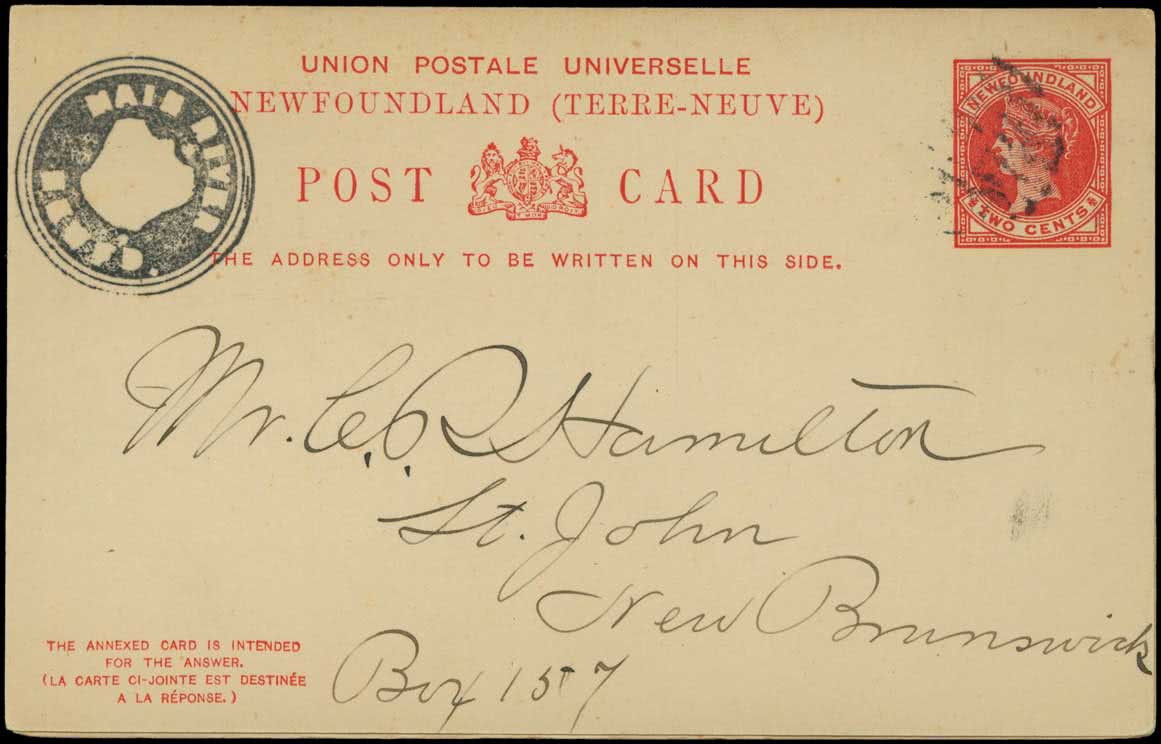 UNION POSTALE UNIVERSELLE
NEWFOUNDLAND (TERRE-NEUVE)
POST CARD
THE ADDRESS ONLY TO BE WRITTEN ON THIS SIDE.
NEWFOUNDLAND
TWO CENTS
MAIN RIVER
Mr. C. R Hamilton
St. John
New Brunswick
Box 157
THE ANNEXED CARD IS INTENDED
FOR THE ANSWER.
(LA CARTE CI-JOINTE EST DESTINÉE
A LA RÉPONSE.)